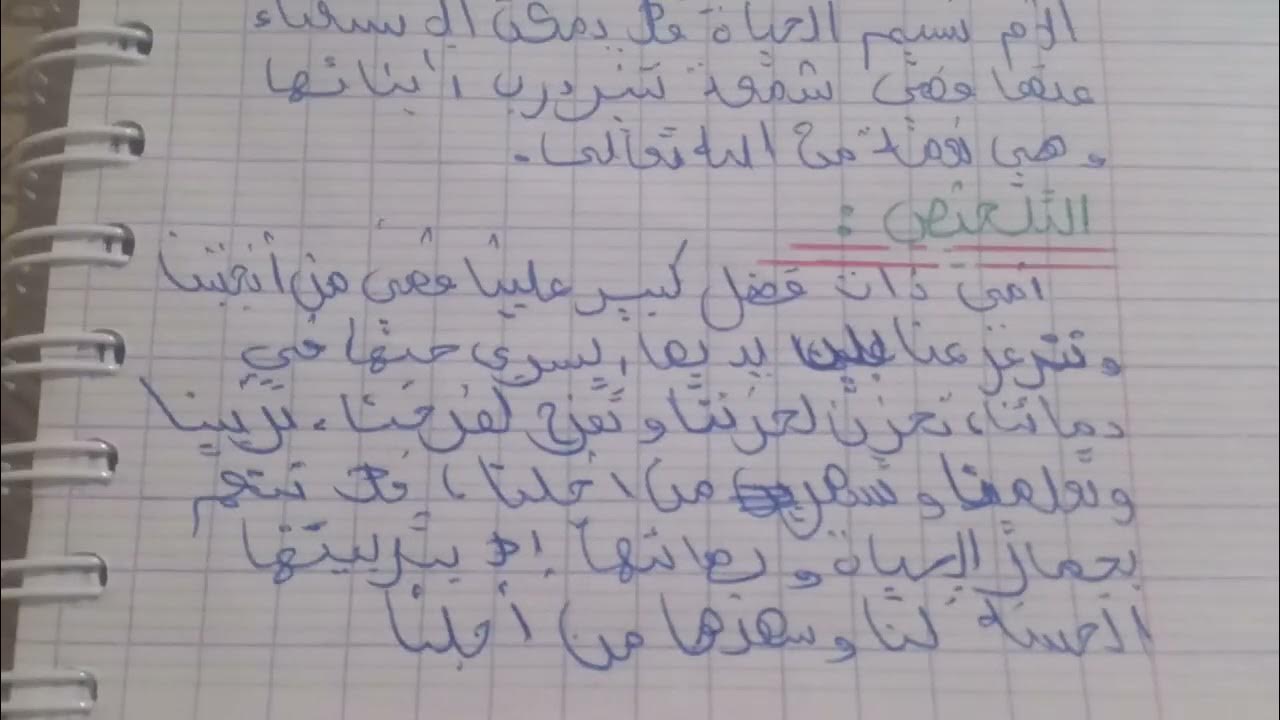 الأم نسيم الحياة فلا يمكن الاستغناء
عنها وهي شمعة تنير درب أبنائها
وهي نعمة من الله تعالى.
التلخيص :
أمي ذات فضل كبير علينا وهي من أنجبتنا
وترعرعنا على يديها، يسري حبها في
دمائنا، تحزن لحزننا وتفرح لفرحنا، تربينا
وتعلمنا وتسهر من أجلنا، فلا ننعم
بجمال الحياة وروعتها إلا بتربيتها
الحسنة لنا وسهرها من أجلنا